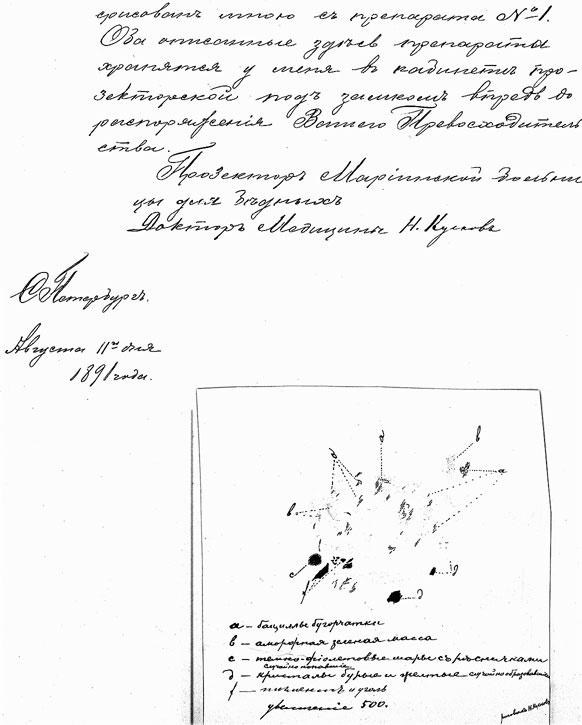 срисованъ мною съ препарата № 1.
Оба описанные здѣсь препараты
хранятся у меня въ кабинетѣ про-
зекторской подъ замкомъ впредь до
распоряженія Вашего Превосходитель
ства.
Прозекторъ Маріинской больни
цы для бѣдныхъ
Докторъ Медицины Н. Кусковъ
С Петербургъ.
Августа 11го дня
1891 года.
d
d
b
a
b
c
f
d
d
a – бациллы бугорчатки
b – аморфная зеленая масса
c – темно-фіолетовые шары съ рѣсничками
случайно попавшіе
d – кристалы бурые и желтые случайно образовавш
f – пигментъ и уголь
увеличеніе 500.
рисовалъ Н. Кусковъ